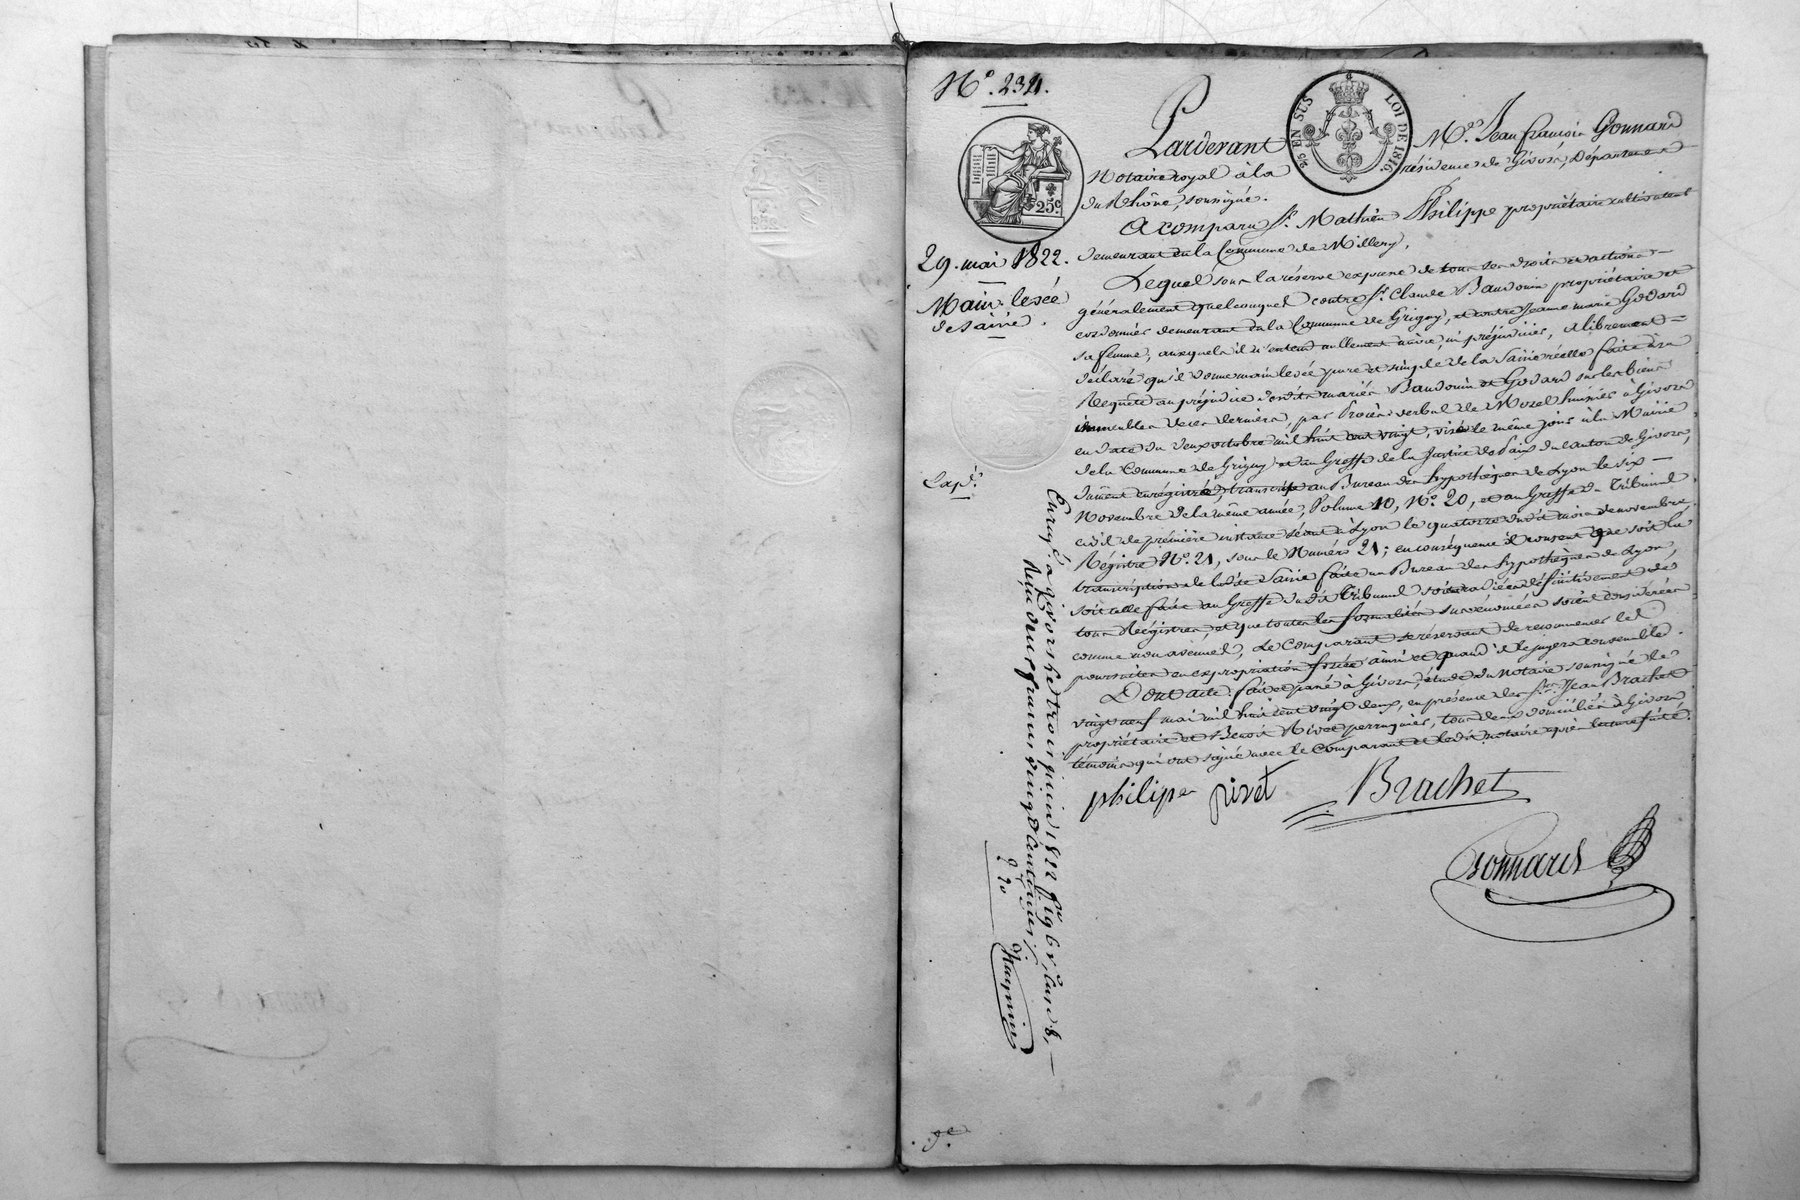 N.º 234.
25 EN SUS LOI DE 1816.
25c
Pardevant M.e Jean françois Gonnard
Notaire royal à la résidence de Givors, Département
du Rhône, soussigné.
A comparu S.r Mathieu Philippe propriétaire cultivateur
demeurant en la Commune de Millery,
29. mai 1822.
Main-levée
de saisie.
Lequel sous la réserve expresse de tous ses droits et actions
généralement quelconques contre S.r Claude Baudouin propriétaire et
cordonnier demeurant en la Commune de Grigny, et contre Jeanne marie Godard
sa femme, auxquels il n'entend nullement nuire, ni préjudicier, a librement
déclaré qu'il donne main levée pure et simple de la Saisie réelle faite à sa
Requête au préjudice desdits mariés Baudouin et Godard sur les biens
immeubles de ces derniers, par Procès-verbal de Morel huissier à Givors
en date du deux octobre mil huit cent vingt, visé le même jour à la Mairie
de la Commune de Grigny et au Greffe de la Justice de Paix du canton de Givors,
dûment enrégistré, transcrite au Bureau des hypothèques de Lyon le six
Novembre de la même année, Volume 10, N.º 20, et au Greffe du Tribunal
civil de première instance séant à Lyon le quatorze dudit mois de novembre
Régistre N.º 21, sous le Numéro 21; en conséquence il consent que soit la
transcription de ladite Saisie faite au Bureau des hypothèques de Lyon,
soit celle faite au Greffe dudit Tribunal soient radiées définitivement de
tous Régistres, et que toutes les formalités susénoncées soient considérées
comme non avenues, Le Comparant se réservant de recommencer les
poursuites en expropriation forcée ainsi et quand il le jugera convenable.
Dont acte: fait et passé à Givors, étude du notaire soussigné le
vingt neuf mai mil huit cent vingt deux, en présence des S.rs Jean Brachet
propriétaire et Benoit Rivet perruquier, tous deux domiciliés à Givors
témoins qui ont signé avec le Comparant et ledit notaire après lecture faite.
philipe rivet Brachet
Gonnard
Exp.é
Enreg.é à givors le trois juin 1822 f.º 19 6 v.º, Cases 8,
Reçu deux francs vingt centimes
2 20